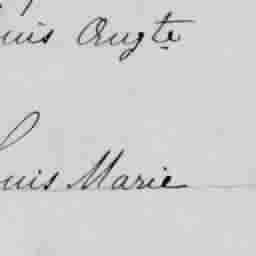 uis Augte
Louis Marie